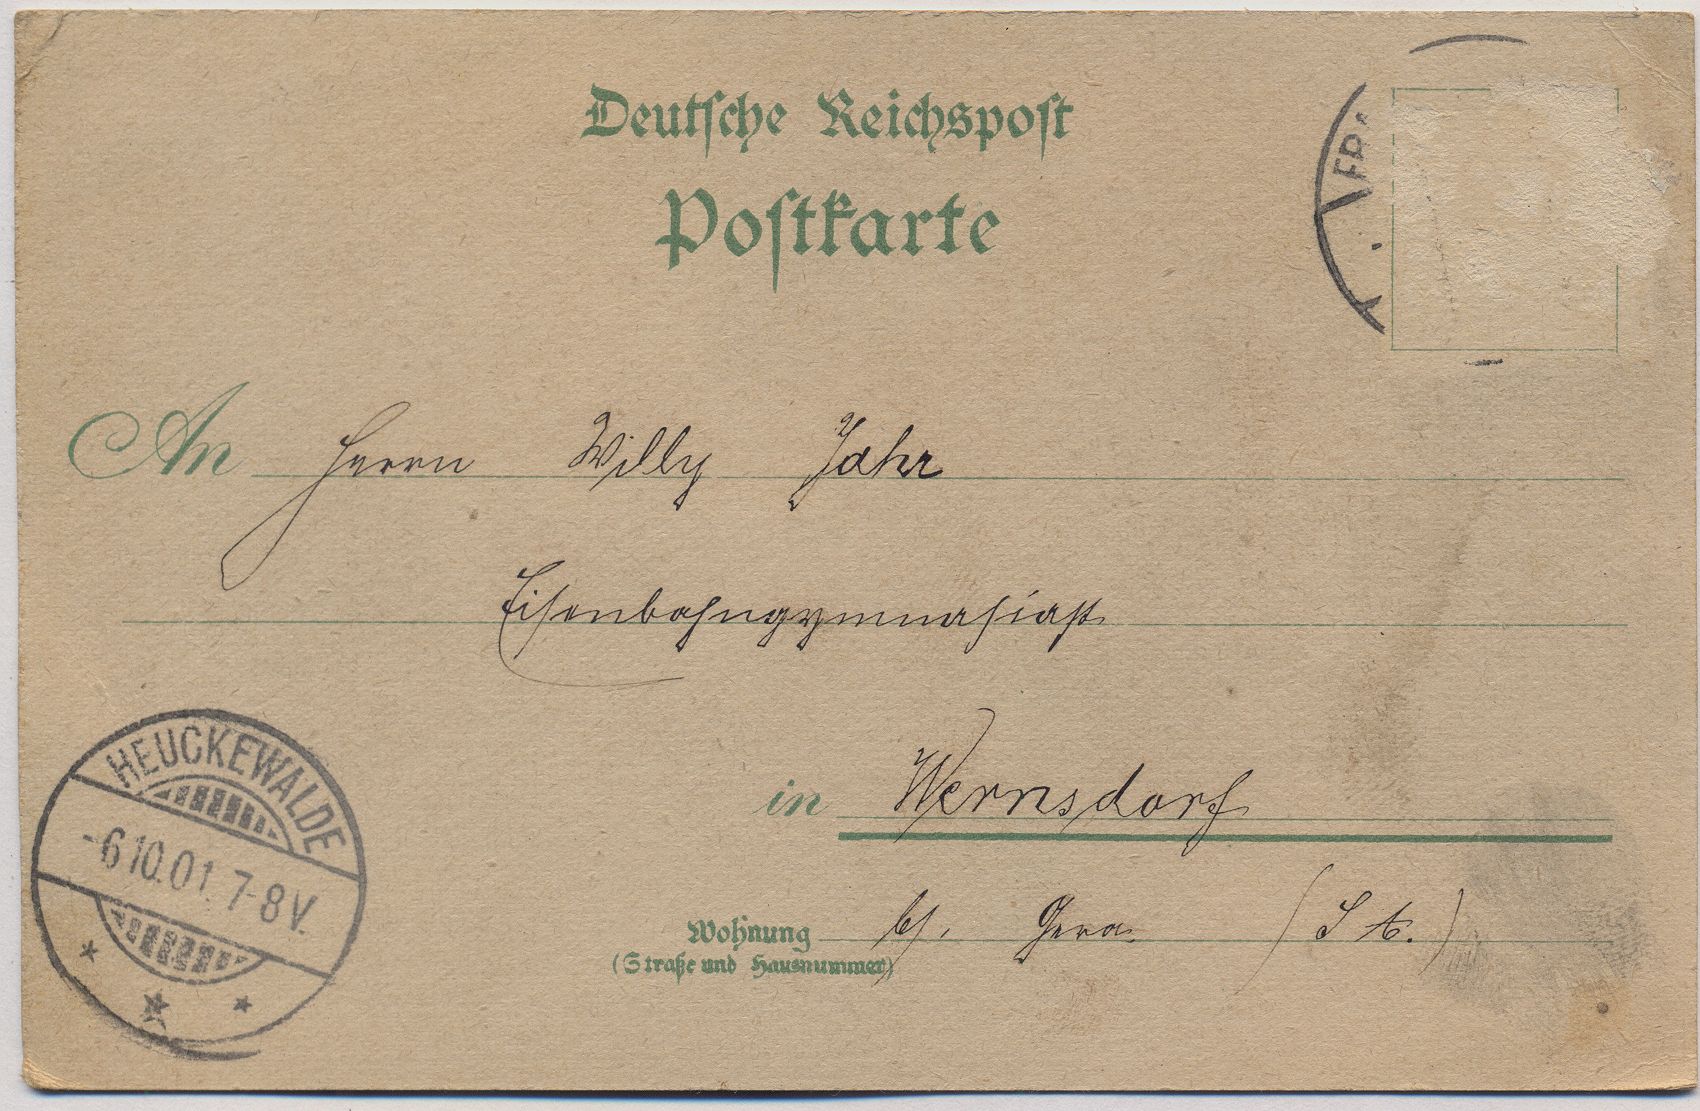 Deutsche Reichspost
Postkarte
FRA
An Herrn Willy Jahr
Eisenbahngymnasiast
in Wernsdorf
Wohnung b/. Gera. (S A.)
(Straße und Hausnummer)
HEUCKEWALDE
-6.10.01. 7-8V.